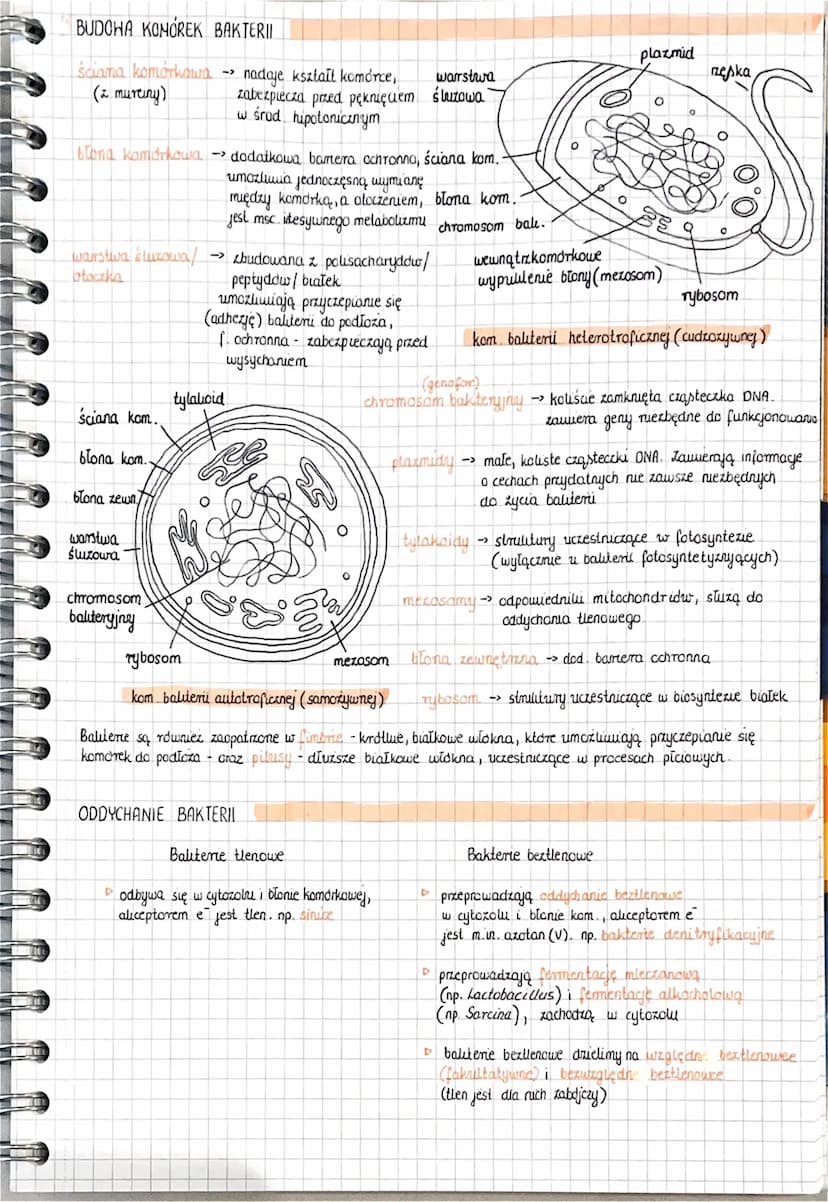 BUDOWA KOMÓREK BAKTERII
ściana komórkowa -> nadaje kształt komórce,
(z mureiny) zabezpiecza przed pęknięciem
w środ. hipotonicznym
błona komórkowa -> dodatkowa bariera ochronna,
umożliwia jednoczesną wymianę
między komórką, a otoczeniem,
jest msc. itesywnego metabolizmu
warstwa śluzowa/ -> zbudowana z polisacharydów/
otoczka peptydów/ białek
umożliwiają przyczepianie się
(adhezję) bakterii do podłoża,
f. ochronna - zabezpieczają przed
wysychaniem
plazmid
rzęska
warstwa
śluzowa
ściana kom.
błona kom.
chromosom bak.
wewnątrzkomórkowe
wypuklenie błony (mezosom)
rybosom
kom. bakterii heterotroficznej (cudzożywnej)
tylakoid
ściana kom.
błona kom.
błona zewn.
warstwa
śluzowa
chromosom
bakteryjny
rybosom
mezosom
kom. bakterii autotroficznej (samożywnej)
(genofor)
chromosom bakteryjny -> koliście zamknięta cząsteczka DNA.
zawiera geny niezbędne do funkcjonowania
plazmidy -> małe, koliste cząsteczki DNA. Zawierają informacje
o cechach przydatnych nie zawsze niezbędnych
do życia bakterii
tylakoidy -> struktury uczestniczące w fotosyntezie
(wyłącznie u bakterii fotosyntetyzujących)
mezosomy -> odpowiedniki mitochondriów, służą do
oddychania tlenowego
błona zewnętrzna -> dod. bariera ochronna
rybosom -> struktury uczestniczące w biosyntezie białek
Bakterie są również zaopatrzone w fimbrie - krótkie, białkowe włókna, które umożliwiają przyczepianie się
komórek do podłoża - oraz pilusy - dłuższe białkowe włókna, uczestniczące w procesach płciowych.
ODDYCHANIE BAKTERII
Bakterie tlenowe
odbywa się w cytozolu i błonie komórkowej,
akceptorem e⁻ jest tlen. np. sinice
Bakterie beztlenowe
przeprowadzają oddychanie beztlenowe
w cytozolu i błonie kom., akceptorem e⁻
jest m.in. azotan (V). np. bakterie denitryfikacyjne
przeprowadzają fermentację mleczanową
(np. Lactobacillus) i fermentację alkoholową
(np. Sarcina), zachodzą w cytozolu
bakterie beztlenowe dzielimy na względne beztlenowce
(fakultatywne) i bezwzględne beztlenowce
(tlen jest dla nich zabójczy)